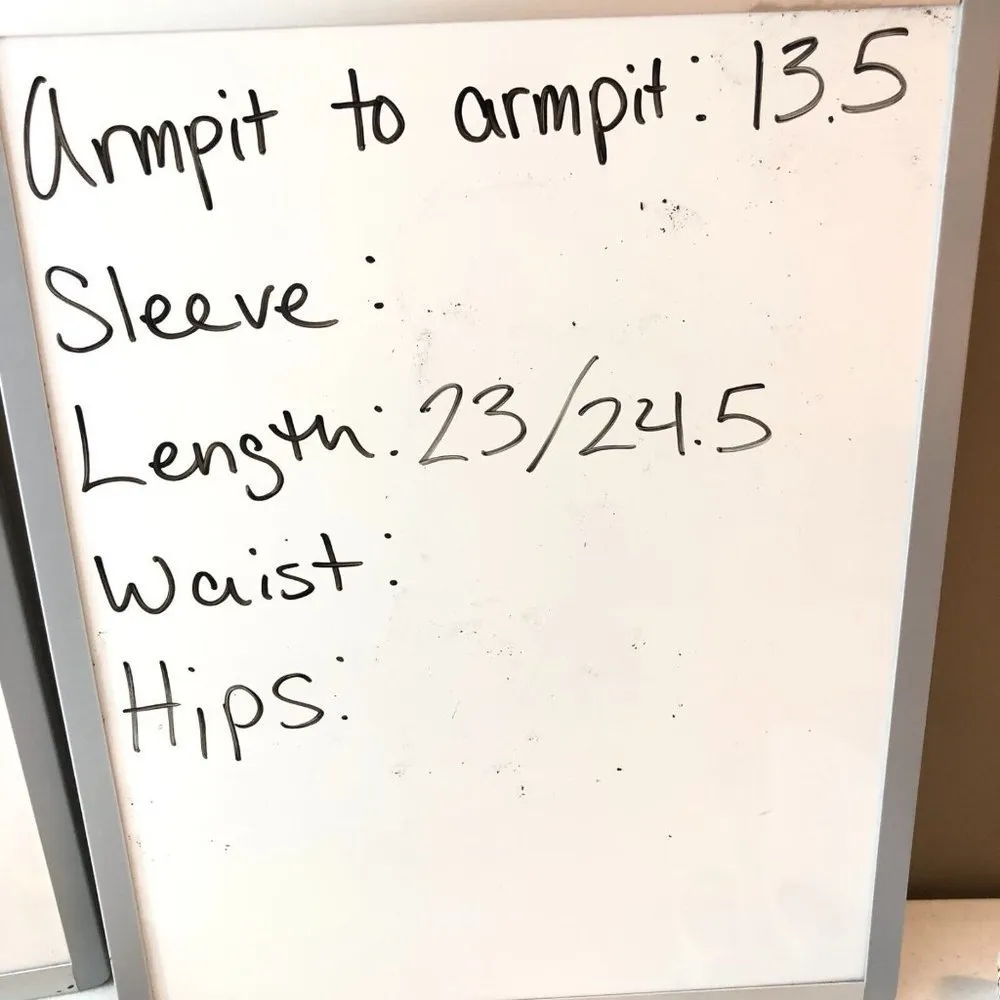 Armpit to armpit: 13.5
Sleeve:
Length: 23/24.5
Waist:
Hips: